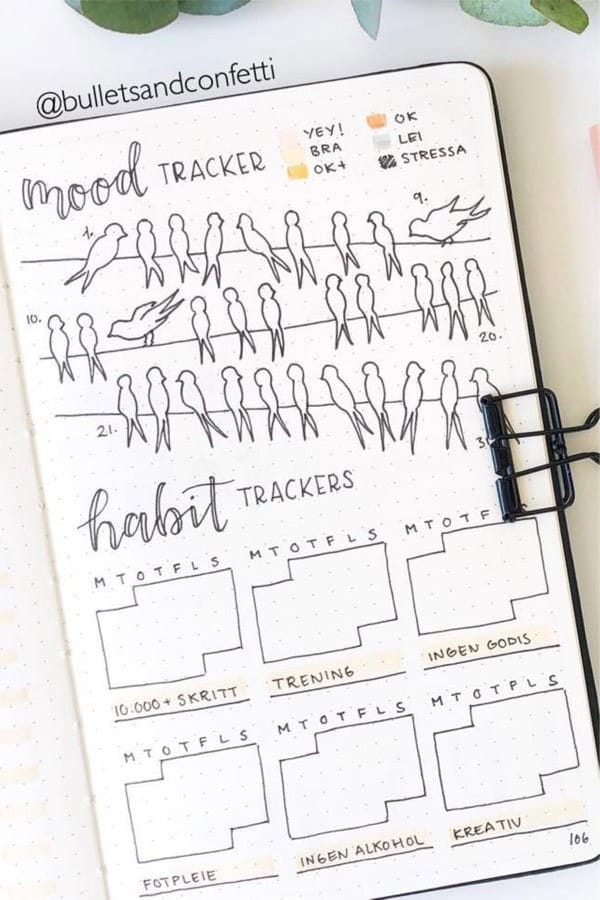 @bulletsandconfetti
mood TRACKER
YEY!
BRA
OK+
OK
LEI
STRESSA
1.
9.
10.
20.
21.
habit TRACKERS
M T O T F L S
M T O T F L S
M T O T F
10.000+ SKRITT
TRENING
INGEN GODIS
M T O T F L S
M T O T F L S
M T O T F L S
FOTPLEIE
INGEN ALKOHOL
KREATIV
106